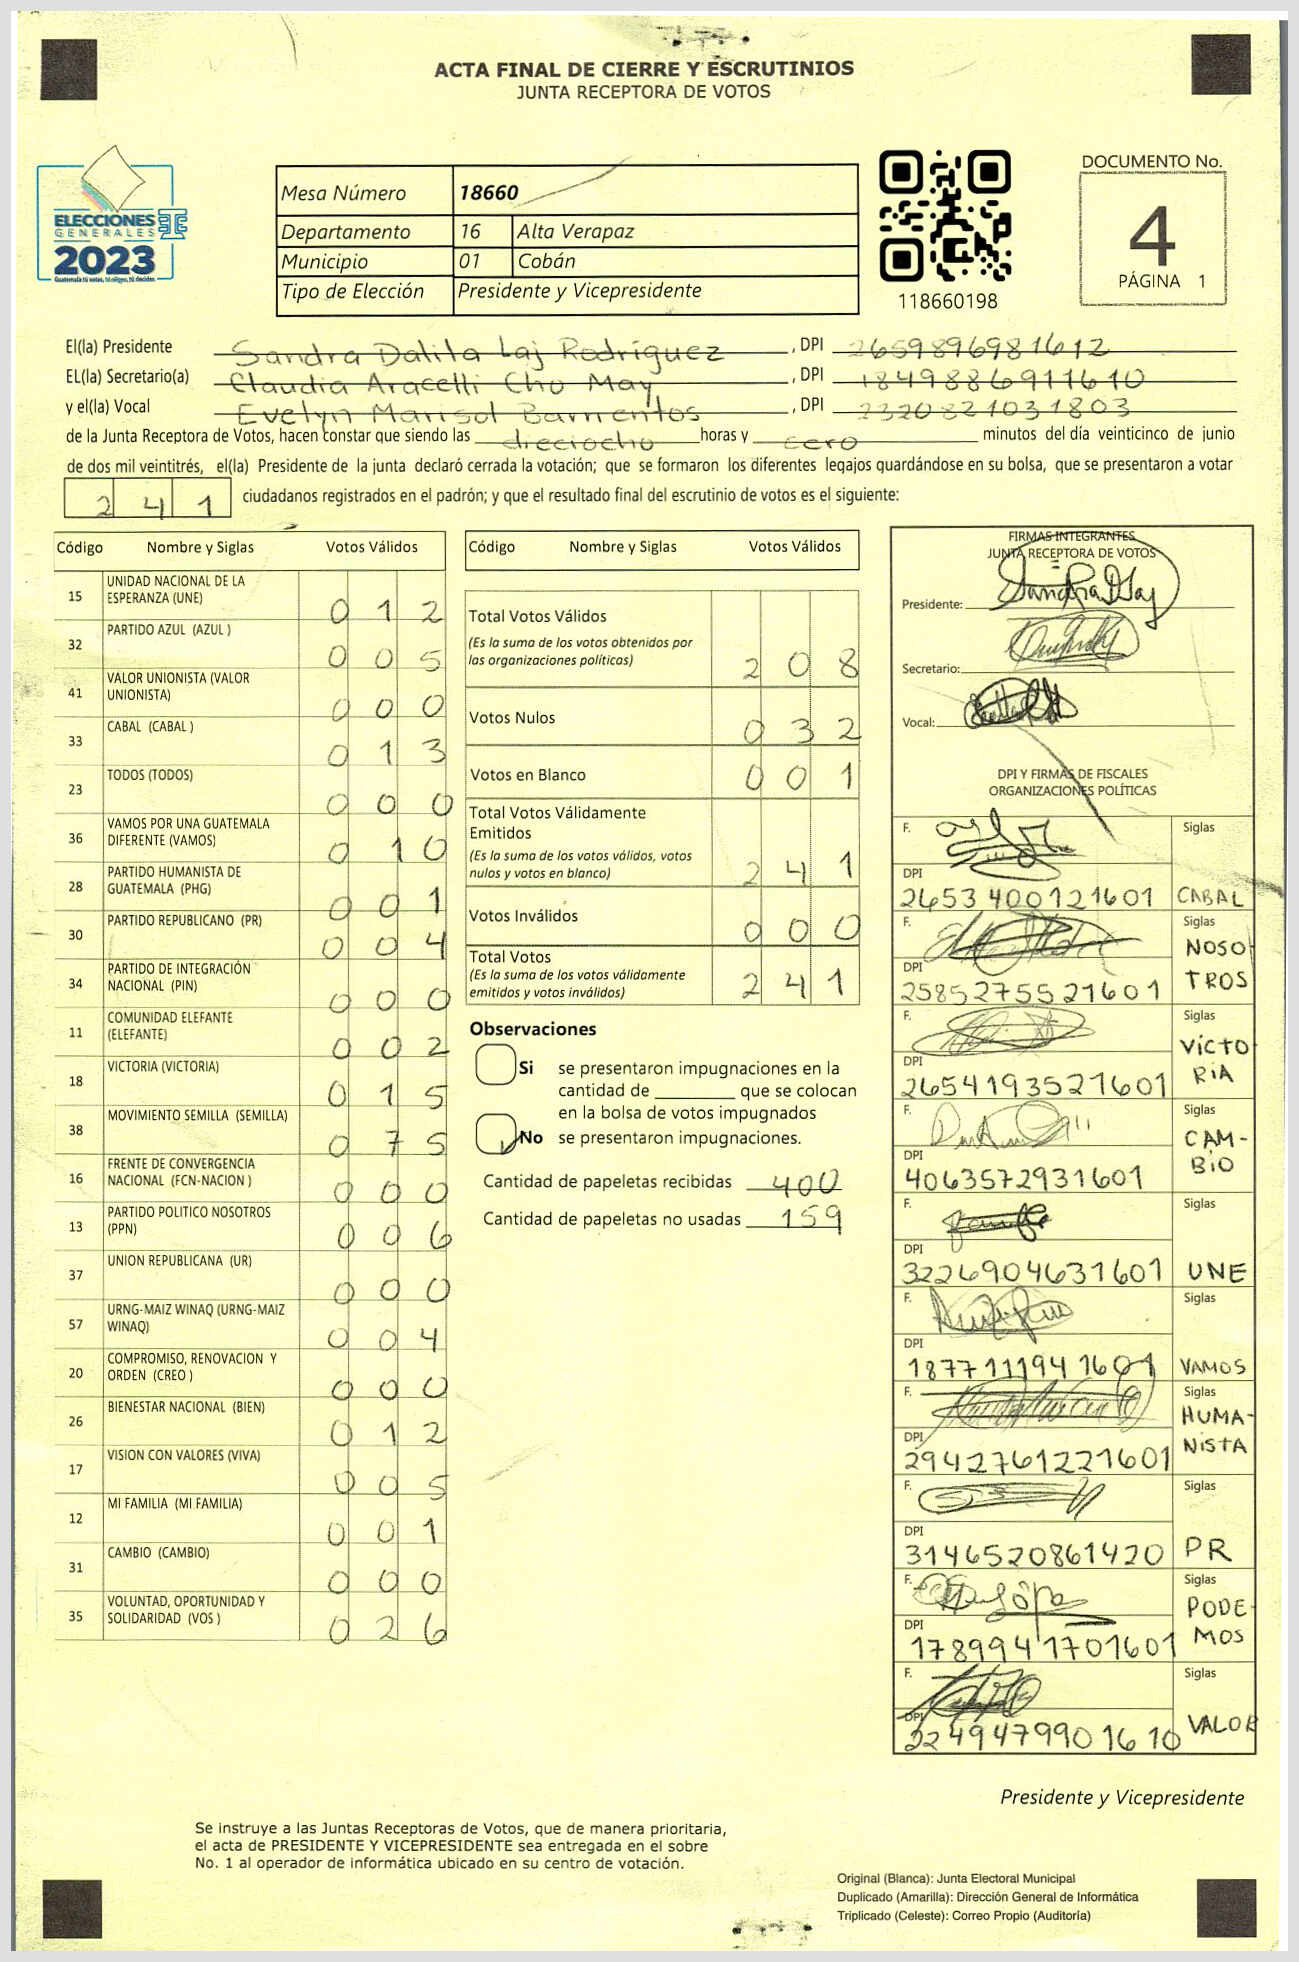 ACTA FINAL DE CIERRE Y ESCRUTINIOS
JUNTA RECEPTORA DE VOTOS
ELECCIONES
GENERALES
2023
Guatemala tú votas, tú eliges, tú decides
Mesa Número 18660
Departamento 16 Alta Verapaz
Municipio 01 Cobán
Tipo de Elección Presidente y Vicepresidente
118660198
DOCUMENTO No.
4
PÁGINA 1
El(la) Presidente Sandra Dalila Laj Rodríguez , DPI 2659896981612
EL(la) Secretario(a) Claudia Aracelli Cho May , DPI 1849886911610
y el(la) Vocal Evelyn Marisol Barrientos , DPI 2320821031803
de la Junta Receptora de Votos, hacen constar que siendo las dieciocho horas y cero minutos del día veinticinco de junio
de dos mil veintitrés, el(la) Presidente de la junta declaró cerrada la votación; que se formaron los diferentes legajos guardándose en su bolsa, que se presentaron a votar
241 ciudadanos registrados en el padrón; y que el resultado final del escrutinio de votos es el siguiente:
Código Nombre y Siglas Votos Válidos
15 UNIDAD NACIONAL DE LA
ESPERANZA (UNE) 012
32 PARTIDO AZUL (AZUL ) 005
41 VALOR UNIONISTA (VALOR
UNIONISTA) 000
33 CABAL (CABAL ) 013
23 TODOS (TODOS) 000
36 VAMOS POR UNA GUATEMALA
DIFERENTE (VAMOS) 010
28 PARTIDO HUMANISTA DE
GUATEMALA (PHG) 001
30 PARTIDO REPUBLICANO (PR) 004
34 PARTIDO DE INTEGRACIÓN
NACIONAL (PIN) 000
11 COMUNIDAD ELEFANTE
(ELEFANTE) 002
18 VICTORIA (VICTORIA) 015
38 MOVIMIENTO SEMILLA (SEMILLA) 075
16 FRENTE DE CONVERGENCIA
NACIONAL (FCN-NACION ) 000
13 PARTIDO POLITICO NOSOTROS
(PPN) 006
37 UNION REPUBLICANA (UR) 000
57 URNG-MAIZ WINAQ (URNG-MAIZ
WINAQ) 004
20 COMPROMISO, RENOVACION Y
ORDEN (CREO ) 000
26 BIENESTAR NACIONAL (BIEN) 012
17 VISION CON VALORES (VIVA) 005
12 MI FAMILIA (MI FAMILIA) 001
31 CAMBIO (CAMBIO) 000
35 VOLUNTAD, OPORTUNIDAD Y
SOLIDARIDAD (VOS ) 026
Código Nombre y Siglas Votos Válidos
Total Votos Válidos
(Es la suma de los votos obtenidos por
las organizaciones políticas) 208
Votos Nulos 032
Votos en Blanco 001
Total Votos Válidamente
Emitidos
(Es la suma de los votos válidos, votos
nulos y votos en blanco) 241
Votos Inválidos 000
Total Votos
(Es la suma de los votos válidamente
emitidos y votos inválidos) 241
Observaciones
Si se presentaron impugnaciones en la
cantidad de ________ que se colocan
en la bolsa de votos impugnados
No se presentaron impugnaciones.
Cantidad de papeletas recibidas 400
Cantidad de papeletas no usadas 159
FIRMAS INTEGRANTES
JUNTA RECEPTORA DE VOTOS
Presidente:
Secretario:
Vocal:
DPI Y FIRMAS DE FISCALES
ORGANIZACIONES POLÍTICAS
F. Siglas
DPI
2653400121601 CABAL
F. Siglas
NOSO-
DPI TROS
2585275521601
F. Siglas
VICTO
DPI RIA
2654193521601
F. Siglas
CAM-
DPI BIO
4063572931601
F. Siglas
DPI
3226904631601 UNE
F. Siglas
DPI
1877111941601 VAMOS
F. Siglas
HUMA-
DPI NISTA
2942761221601
F. Siglas
DPI
3146520861420 PR
F. Siglas
PODE-
DPI MOS
1789941701601
F. Siglas
DPI VALOR
2249479901610
Presidente y Vicepresidente
Se instruye a las Juntas Receptoras de Votos, que de manera prioritaria,
el acta de PRESIDENTE Y VICEPRESIDENTE sea entregada en el sobre
No. 1 al operador de informática ubicado en su centro de votación.
Original (Blanca): Junta Electoral Municipal
Duplicado (Amarilla): Dirección General de Informática
Triplicado (Celeste): Correo Propio (Auditoría)